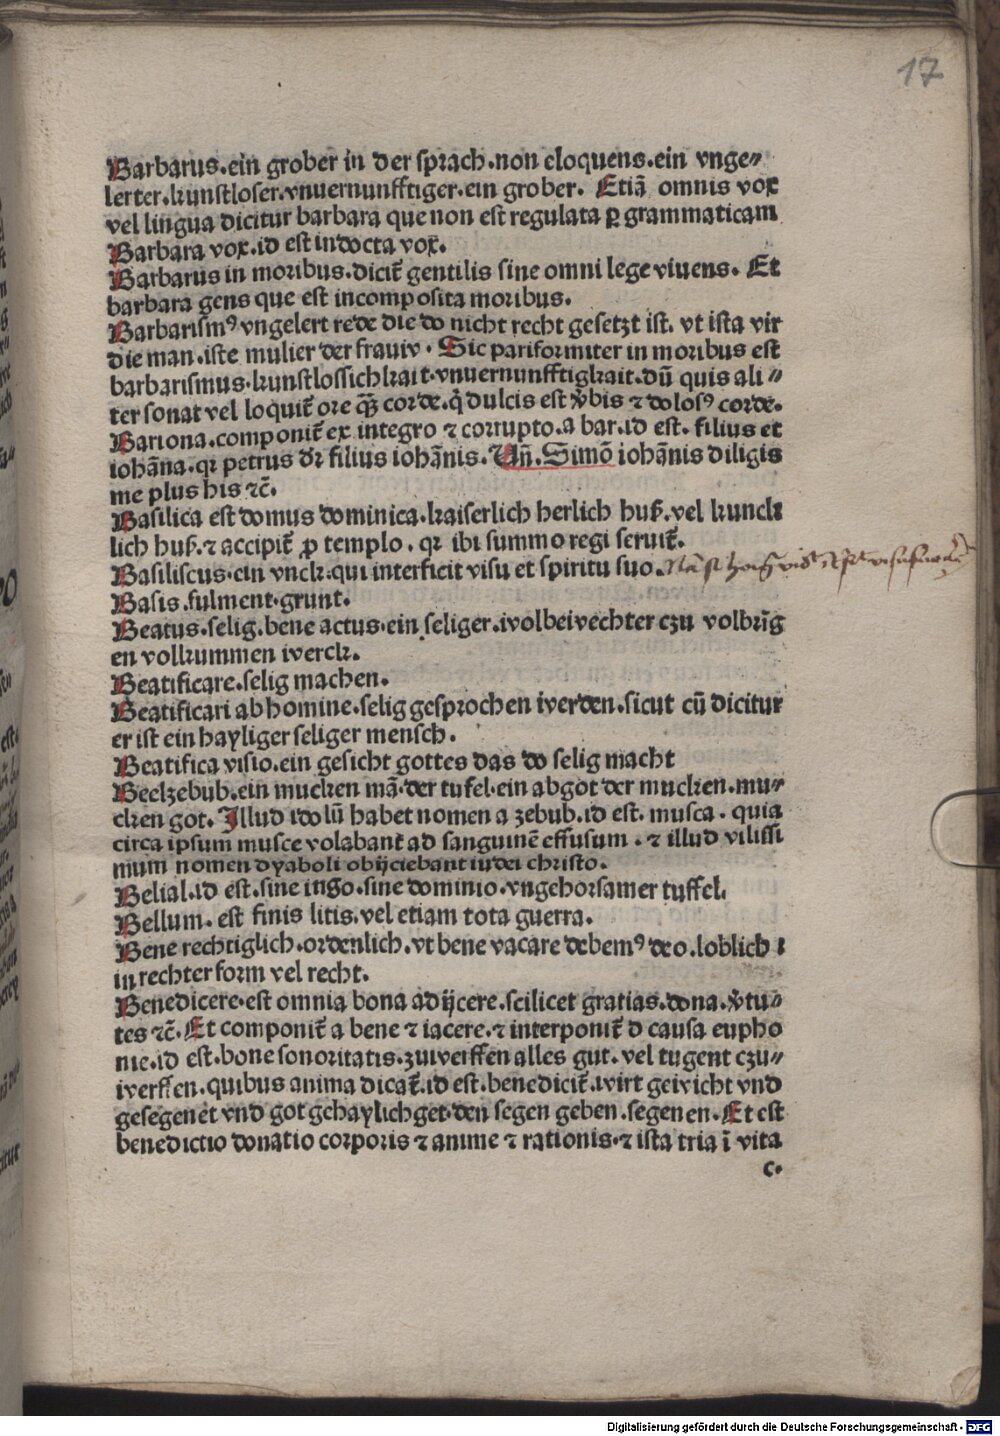 17
Barbarus.ein grober in der sprach.non eloquens.ein vnge⸗
lerter.kunstloser.vnuernunfftiger.ein grober. Etiā omnis vox
vel lingua dicitur barbara que non est regulata ꝑ grammaticam
Barbara vox.id est indocta vox.
Barbarus in moribus.dicit᷑ gentilis sine omni lege viuens. Et
barbara gens que est incomposita moribus.
Barbarismꝰ vngelert rede die do nicht recht gesetzt ist. vt ista vir
die man.iste mulier der frauw. Sic pariformiter in moribus est
barbarismus.kunstlossichkait.vnuernunfftigkait.dū quis ali⸗
ter sonat vel loquit᷑ ore qꝫ̄ corde.q̇ dulcis est v̓bis ⁊ dolosꝰ corde.
Bariona.componit᷑ ex integro ⁊ corrupto.a bar.id est. filius et
iohāna.qꝛ petrus dr̄ filius iohānis.Vn̄.Simō iohānis diligis
me plus his ⁊c̄.
Basilica est domus dominica.kaiserlich herlich huß.vel kunck
lich huß.⁊ accipit᷑ ꝓ templo.qꝛ ibi summo regi seruit᷑.
Basiliscus.ein vnck.qui interficit visu et spiritu suo.
Basis.fulment.grunt.
Beatus.selig.bene actus.ein seliger.wolbewechter czu volbrīg
en volkummen werck.
Beatificare.selig machen.
Beatificari ab homine.selig gesprochen werden.sicut cū dicitur
er ist ein hayliger seliger mensch.
Beatifica visio.ein gesicht gottes das do selig macht
Beelzebub.ein mucken mā.der tufel.ein abgot der mucken.mu⸗
cken got. Illud idolū habet nomen a zebub.id est. musca. quia
circa ipsum musce volabant ad sanguinē effusum. ⁊ illud vilissi
mum nomen dyaboli obijciebant iudei christo.
Belial.id est.sine iugo.sine dominio.vngehorsamer tuffel.
Bellum. est finis litis.vel etiam tota guerra.
Bene rechtiglich.ordenlich.vt bene vacare debemꝰ deo.loblich ⁊
in rechter form vel recht.
Benedicere.est omnia bona adijcere.scilicet gratias.dona.v̓tu⸗
tes ⁊c̄.Et componit᷑ a bene ⁊ iacere.⁊ interponit᷑ d causa eupho
nie.id est.bone sonoritatis.zuwerffen alles gut.vel tugent czu⸗
werffen.quibus anima dicat᷑.id est.benedicit᷑.wirt gewicht vnd
gesegenet vnd got gehaylichget.den segen geben.segenen.Et est
benedictio donatio corporis ⁊ anime ⁊ rationis.⁊ ista tria ī vita
c.
Digitalisierung gefördert durch die Deutsche Forschungsgemeinschaft - DFG